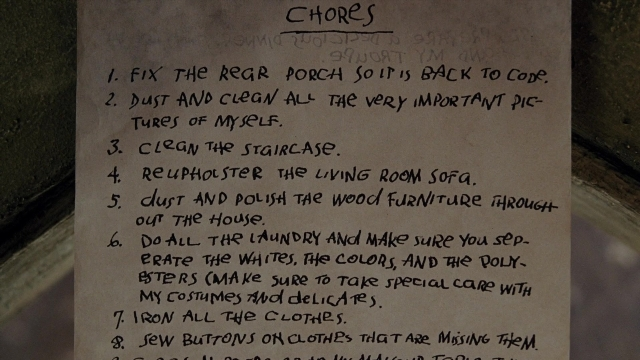 CHORES
1. FIX THE REAR PORCH SO IT IS BACK TO CODE.
2. DUST AND CLEAN ALL THE VERY IMPORTANT PIC-
TURES OF MYSELF.
3. CLEAN THE STAIRCASE.
4. REUPHOLSTER THE LIVING ROOM SOFA.
5. DUST AND POLISH THE WOOD FURNITURE THROUGH-
OUT THE HOUSE.
6. DO ALL THE LAUNDRY AND MAKE SURE YOU SEP-
ERATE THE WHITES, THE COLORS, AND THE POLY-
ESTERS (MAKE SURE TO TAKE SPECIAL CARE WITH
MY COSTUMES AND DELICATES.
7. IRON ALL THE CLOTHES.
8. SEW BUTTONS ON CLOTHES THAT ARE MISSING THEM.